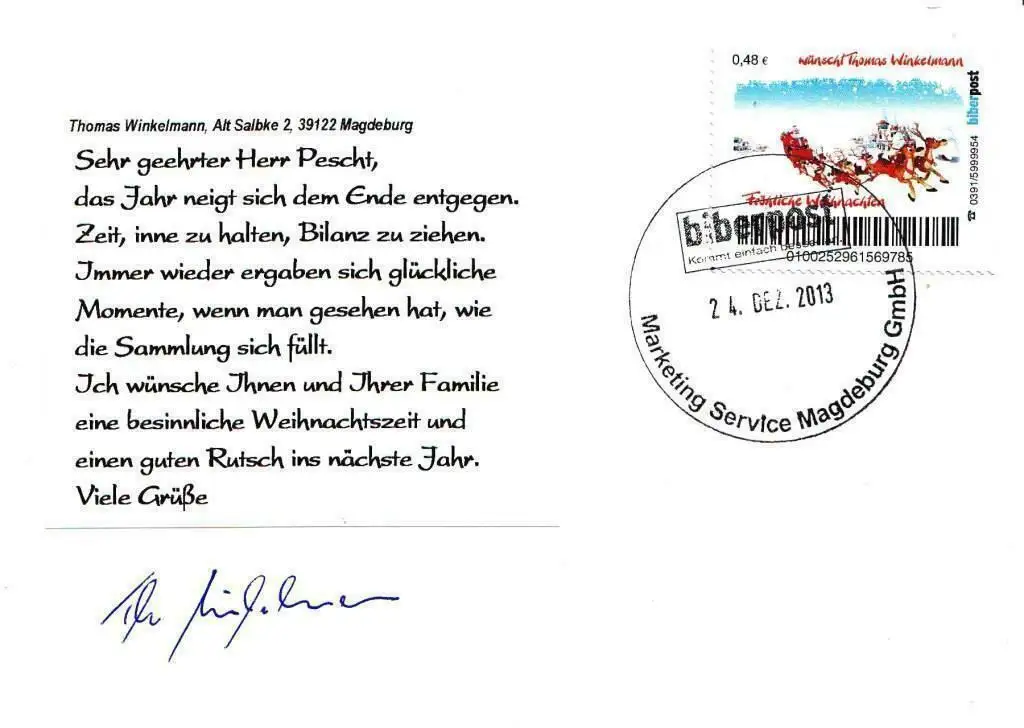 Thomas Winkelmann, Alt Salbke 2, 39122 Magdeburg
Sehr geehrter Herr Pescht,
das Jahr neigt sich dem Ende entgegen.
Zeit, inne zu halten, Bilanz zu ziehen.
Immer wieder ergaben sich glückliche
Momente, wenn man gesehen hat, wie
die Sammlung sich füllt.
Ich wünsche Ihnen und Ihrer Familie
eine besinnliche Weihnachtszeit und
einen guten Rutsch ins nächste Jahr.
Viele Grüße
0,48 €
wünscht Thomas Winkelmann
biberpost
☎ 0391/5999954
Fröhliche Weihnachten
biberpost
Kommt einfach
0100252961569785
24. DEZ. 2013
Marketing Service Magdeburg GmbH